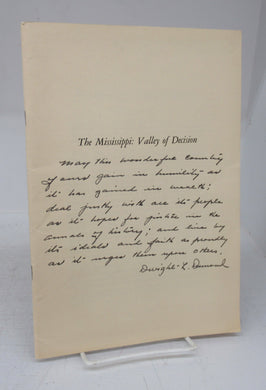 The Mississippi: Valley of Decision
May this wonderful country
of ours gain in humility as
it has gained in wealth;
deal justly with all its people
as it hopes for justice in the
annals of history; and live by
its ideals and faith as proudly
as it urges them upon others.
Dwight L. Dumond